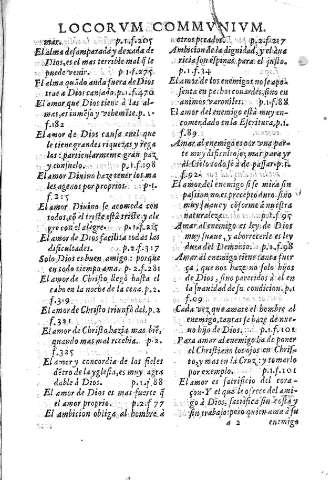 LOCORVM COMMVNIVM.
mar. p.1.f.205
El alma desamparada y dexada de
Dios, es el mas terrible mal q̃ le
puede venir. p.1.f.275
El alma quãdo anda fuera de Dios
trae a Dios cansado. p.1.f.470
El amor que Dios tiene à las al-
mas, es sumo, y vehemẽte. p.1.
f.182
El amor de Dios causa en el que
le tiene grandes riquezas, y rega
los: particularmente gran paz
y consuelo. p.1.f.198
El amor Divino haze tener los ma
les agenos por proprios. p.1.
f.215
El amor Divino se acomoda con
todos, cõ el triste està triste, y ale
gre con el alegre. p.1.f.215
El amor de Dios facilita todas las
dificultades. p.2.f.317
Solo Dios es buen amigo: porque
en todo tiempo ama. p.2.f.281
El amor de Christo llegó hasta el
cabo en la noche de la cena. p.2.
f.319
El amor de Christo triunfò del, p.2
f.321
El amor de Christo hazia mas biẽ,
quando mas mal recebia. p.2.
f.325
El amor y concordia de los fieles
dẽtro de la yglesia, es muy agra
dable à Dios. p.1.f.88
El amor de Dios es mas fuerte q̃
el amor proprio. p.2.f.77
El ambicion obliga al hombre à
otros pecados. p.2.f.217
Ambicion de la dignidad, y el ava
ricia son espinas para el justo.
p.1.f.34
El amor de los enemigos no se apo
senta en pechos couardes, sino en
animos varoniles. p.1.f.88
El amor del enemigo està muy en-
comendado en la Escritura, p.1.
f.89
Amar al enemigo es oir una par-
te muy
al Cielo todo se à de passar. p.1.
f.92
El amor del enemigo si se mira sin
passion no es preceto duro, sino
muy suave y cõforme à nuestra
naturaleza. p.1.f.95
Amar al enemigo es ley de Dios
muy suave, y aborrecelle es ley
dura del Demonio. p.1.f.98
Amar al enemigo tiene tanta fuer
ça, que nos haze no solo hijos de
Dios, sino parecidos à el en
la suauidad de su condicion. p.1.
f.99
Cada vez que amare el hombre al
enemigo, tantas se haze de nue-
vo hijo de Dios. p.1.f.101
Para amar al enemigo ha de poner
el Christiano los ojos en Chris-
to, y mas en la Cruz: y tomarlo
por exemplo. p.1.f.101
El amor es sacrificio del cora-
çon. Y el que le ofrece del ami-
go à Dios, sacrifica sin costa y
sin trabajo: pero quien ama à su
a 2 enemigo